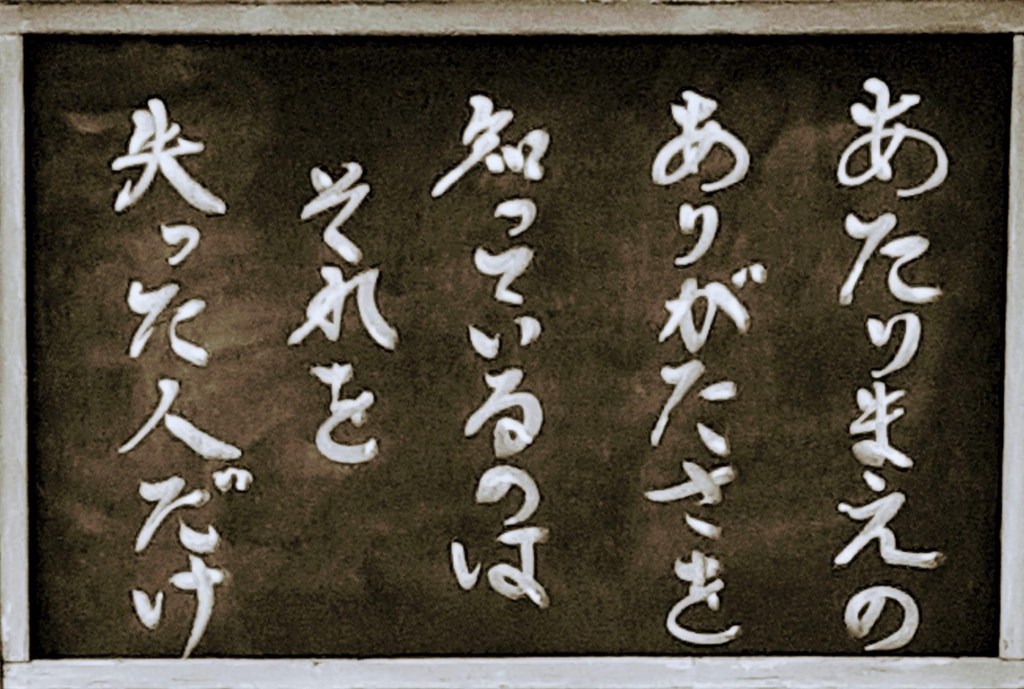 あたりまえの
ありがたさを
知っているのは
それを
失った人だけ